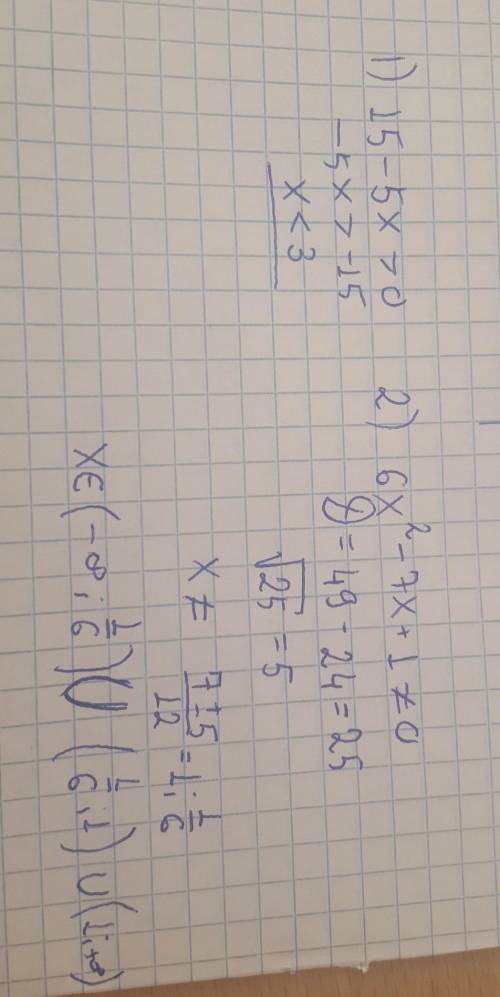 1) 15 - 5x > 0
-5x > -15
x < 3
2) 6x² - 7x + 1 ≠ 0
D = 49 - 24 = 25
√25 = 5
x ≠ (7 ± 5)/12 = 1; 1/6
x ∈ (-∞; 1/6) ∪ (1/6; 1) ∪ (1; +∞)